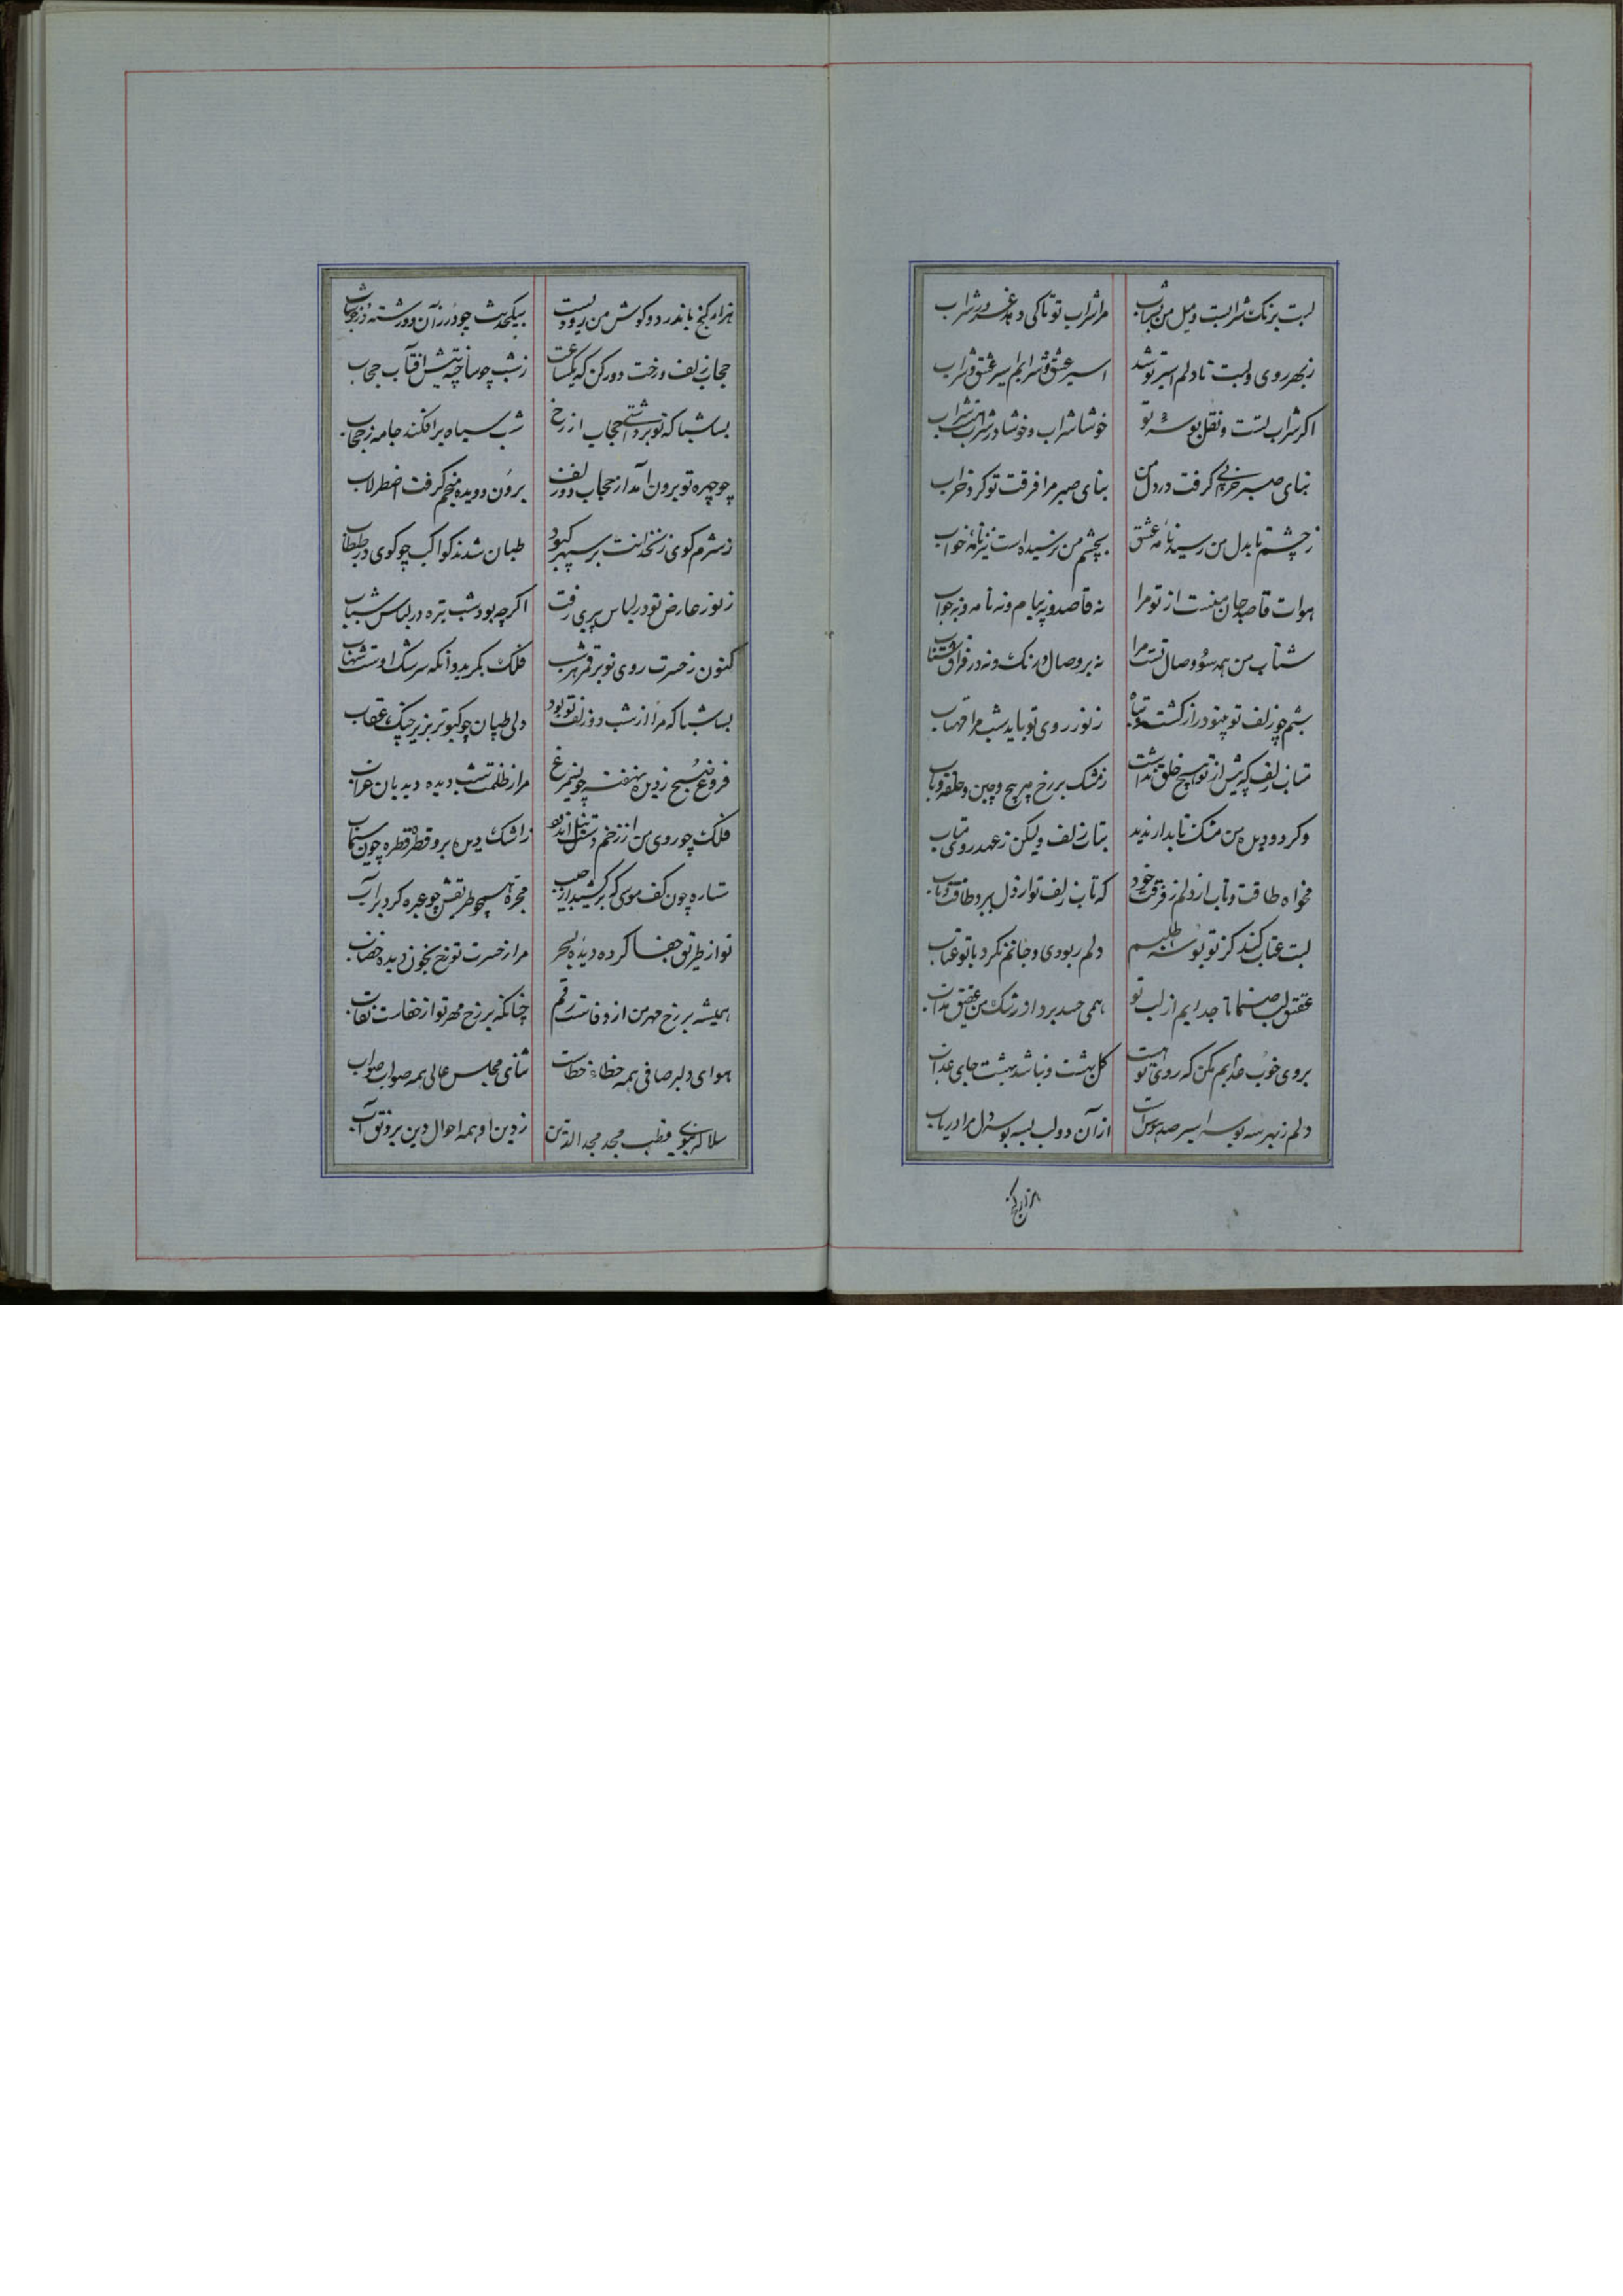 لبت برنک شرابست و میل من بشراب مرا شراب تو تاکی دهد غرور شراب
زبهر روی و لبت تا دلم اسیر تو شد اسیر عشق و شرابم اسیر عشق و شراب
اکر شراب لبتست و نقل بوسه تو خوشا شراب و خوشا در شراب
بنای صبر خرابی کرفت در دل من بنای صبر مرا فرقت تو کرد خراب
زچشم تا بدل من رسید نامه عشق بچشم من نرسیده است نیز نامه خواب
هوات قاصد جان منست از تو مرا نه قاصد و نه پیام و نه نامه و نه جواب
شتاب من همه سوی وصال تست مرا نه بر وصال درنک و نه در فراق شتاب
شبم چو زلف تو درازکشت و سیاه زنور روی تو باید شب مرا مهتاب
متاب زلف که پیش از تو هیچ خلق نداشت زمشک بر رخ پرپیچ و چین و حلقه و تاب
وکر دو دیده من مشک تابدار ندید بتاب زلف ولیکن زعهد روی متاب
مخواه طاقت و تاب از دلم ز فرقت خود که تاب زلف تو از دل ببرد طاقت و تاب
لبت عتاب کند کز تو بوسه طلبم دلم ربودی و جانم نکرد با تو عتاب
عقیق لب صنما تا جدایم از لب تو همی حسد برد از اشک من عقیق مذاب
بروی خوب عذابم مکن که روی تو هست کل بهشت و نباشد بهشت جای عذاب
دلم زبهر سه بوسه اسیر صد هوس است از آن دو لب بسه بوسه دل مرا دریاب
هزار کنج باندر دو کوش من پیوست بیکحدیث چو در زآن دو رشته در خوشاب
حجاب زلف ز رخت دور کن که یکساعت زشب چو ساخته پیش آفتاب حجاب
بسا شبا که تو برداشتی حجاب از رخ شب سیاه برافکند جامه ز حجاب
چو چهره تو برون آمد از حجاب دو زلف برون دویده منجم کرفت اضطرلاب
زشرم کوی زنخدانت بر سپهر کبود طپان شدند کواکب چو کوی در طبطاب
زنور عارض تو در لباس پیری رفت اکرچه بود شب تیره در لباس شباب
کنون زحسرت روی تو بر قمر هر شب فلک بکرید و آنکه سرشک اوست شهاب
بسا شبا که مرا از شب دو زلف تو بود دلی طپان چو کبوتر بزیر چنک عقاب
فروغ صبح ز دیده نهفته چو سیمرغ مرا ز ظلمت شب دیده دیدبان غراب
فلک چو روی من از زخم دست نیل اندود ز اشک دیده برو قطره قطره چون سیماب
ستاره چون کف موسی که برکشید از جیب مجره همچو طریقش چو عبره کرد بر آب
تو از طریق جفا کرده دیده بسحر مرا زحسرت تو رخ بخون دیده خضاب
همیشه بر رخ مهر من از وفاست رقم چنانکه بر رخ مهر تو از جفاست نقاب
هوای دلبر صافی همه خطاء خطاست ثنای مجلس عالی همه صواب صواب
سلاله نبوی قطب مجد مجد الدین زدین او همه احوال دین برونق آب
هزار کنج